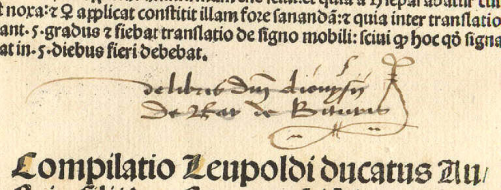 noxa: ⁊ ♀ applicat constitit illam fore sanandā: ⁊ quia inter translatio
ant .5. gradus ⁊ fiebat translatio de signo mobili: sciui ꝙ hoc qđ signa
at in .5. diebus fieri debebat.
de libris dnj dionysij
De Bar de Bituris
Compilatio Leupoldi ducatus Au/